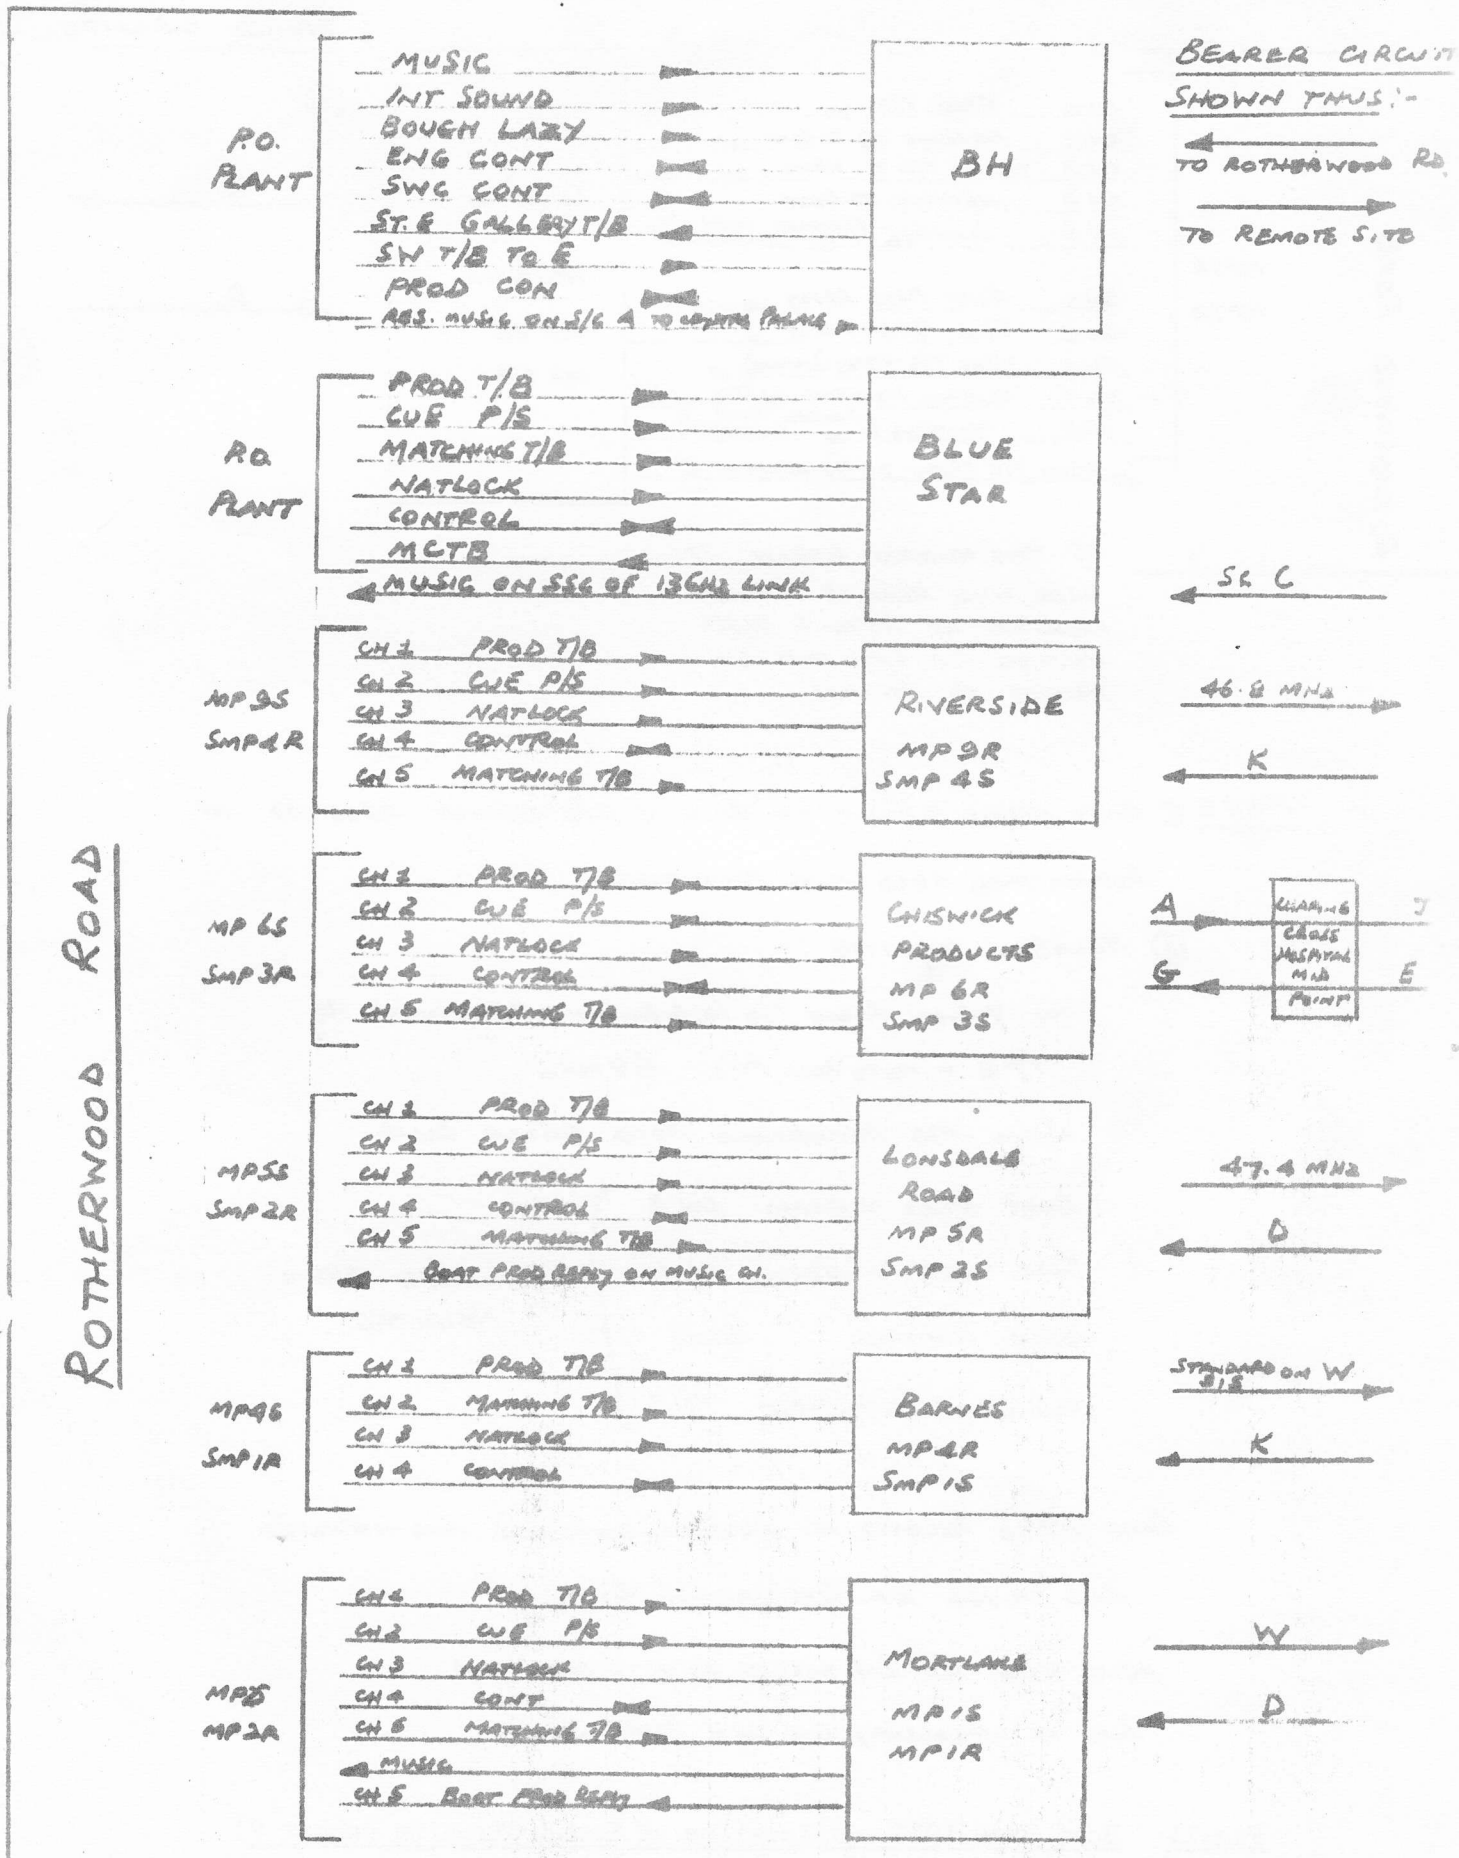 ROTHERWOOD ROAD
P.O.
PLANT
MUSIC
INT SOUND
BOUGH LAZY
ENG CONT
SWC CONT
ST. E GALLERY T/B
SW T/B TO E
PROD CON
RES. MUSIC ON S/C A TO CRYSTAL PALACE
BH
BEARER CIRCUIT
SHOWN THUS:-
TO ROTHERWOOD RD.
TO REMOTE SITE
P.O.
PLANT
PROD T/B
CUE P/S
MATCHING T/B
NATLOCK
CONTROL
MCTB
MUSIC ON SSC OF 13GHz LINK
BLUE
STAR
SC C
MP 9S
SMP4R
CH 1 PROD T/B
CH 2 CUE P/S
CH 3 NATLOCK
CH 4 CONTROL
CH 5 MATCHING T/B
RIVERSIDE
MP 9R
SMP 4S
46.8 MHz
K
MP 6S
SMP 3R
CH 1 PROD T/B
CH 2 CUE P/S
CH 3 NATLOCK
CH 4 CONTROL
CH 5 MATCHING T/B
CHISWICK
PRODUCTS
MP 6R
SMP 3S
A
G
CHARING
CROSS
HOSPITAL
MID
POINT
E
MP5S
SMP2R
CH 1 PROD T/B
CH 2 CUE P/S
CH 3 NATLOCK
CH 4 CONTROL
CH 5 MATCHING T/B
BOAT PROD REPLY ON MUSIC CH.
LONSDALE
ROAD
MP 5R
SMP 2S
47.4 MHz
D
SMP1R
CH 1 PROD T/B
CH 2 MATCHING T/B
CH 3 NATLOCK
CH 4 CONTROL
BARNES
MP4R
SMP 1S
STANDARD ON W
K
MP2R
CH 1 PROD T/B
CH 2 CUE P/S
CH 3 NATLOCK
CH 4 CONT
CH 5 MATCHING T/B
MUSIC
CH 5 BOAT PROD REPLY
MORTLAKE
MP1S
MP1R
W
D